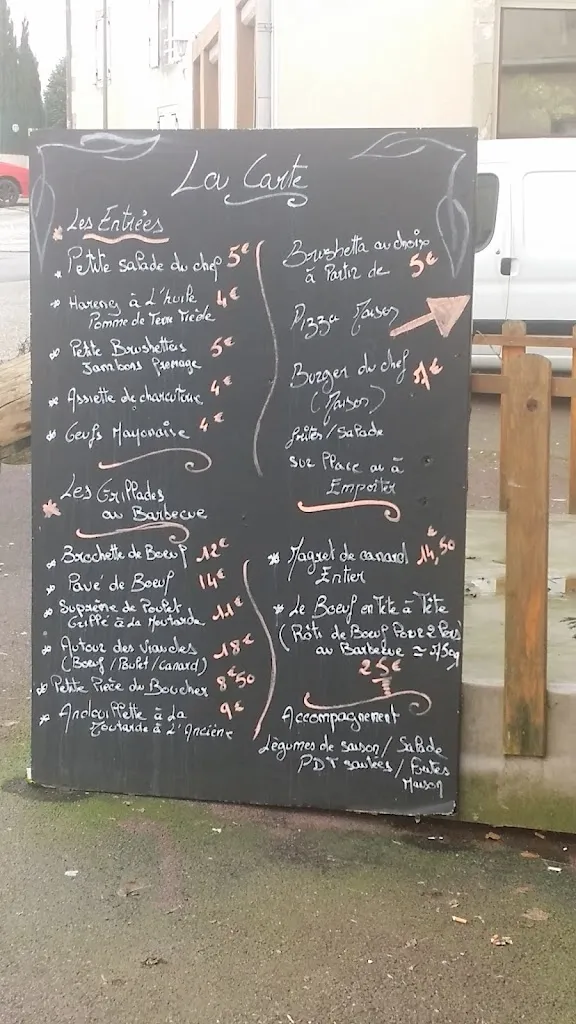 La Carte
Les Entrées
* Petite salade du chef 5€
* Hareng à L'huile 4€
Pomme de Terre Tiède
* Petite Brushettas 5€
Jambons fromage
* Assiette de charcuterie 4€
* Oeufs Mayonaise 4€
Brushetta au choix
à Partir de 5€
Pizza Maison
Burger du chef
(Maison)
frites/Salade
sur Place ou à
Emporter
* Les Grillades
au Barbecue
* Brochette de Boeuf 12€
* Pavé de Boeuf 14€
* Suprème de Poulet 11€
Grillé à La Moutarde
* Autour des viandes 18€
(Boeuf/Poulet/Canard)
* Petite Pièce du Boucher 8€50
* Andouillette à La 9€
Moutarde à L'Ancienne
* Magret de canard 14,50€
Entier
* Le Boeuf en Tête à Tête
(Rôti de Boeuf Pour 2 Pers)
au Barbecue ≈
25€
Accompagnement
Légumes de saison/Salade
PDT sautées/frites
Maison